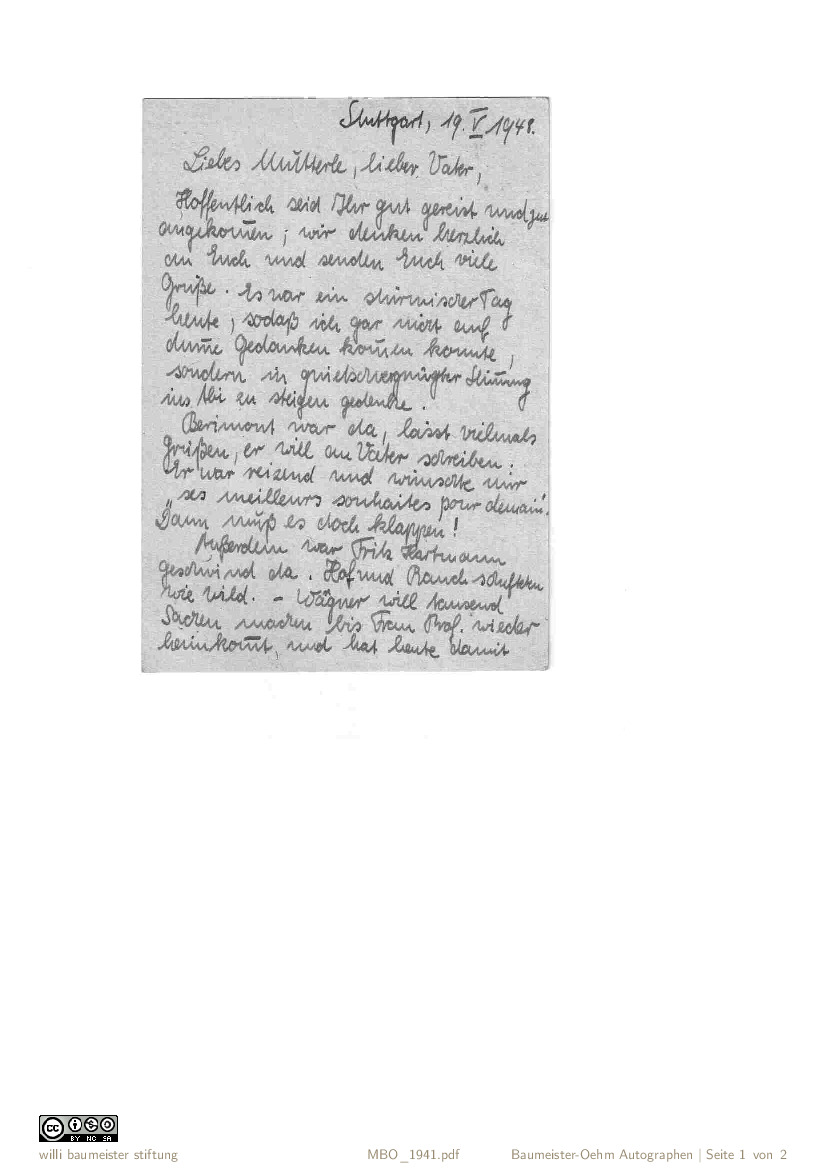 Stuttgart, 19. V 1948.
Liebes Mütterle, lieber Vater,
Hoffentlich seid Ihr gut gereist und gut
angekom̅en; wir denken herzlich
an Euch und senden Euch viele
Grüße. Es war ein stürmischer Tag
heute, sodaß ich gar nicht auf
dum̅e Gedanken kom̅en konnte,
sondern in quietschvergnügter Stim̅ung
ins Abi zu steigen gedenke.
Berimont war da, lässt vielmals
grüßen, er will an Vater schreiben.
Er war reizend und wünschte mir
„ses meilleurs souhaites pour demain“.
Dann muß es doch klappen!
Außerdem war Fritz Hartmann
geschwind da. Hof und Rauch schuften
wie wild. – Wägner will tausend
Sachen machen bis Frau Prof. wieder
heimkom̅t, und hat heute damit
CC BY NC SA
willi baumeister stiftung MBO_1941.pdf Baumeister-Oehm Autographen | Seite 1 von 2